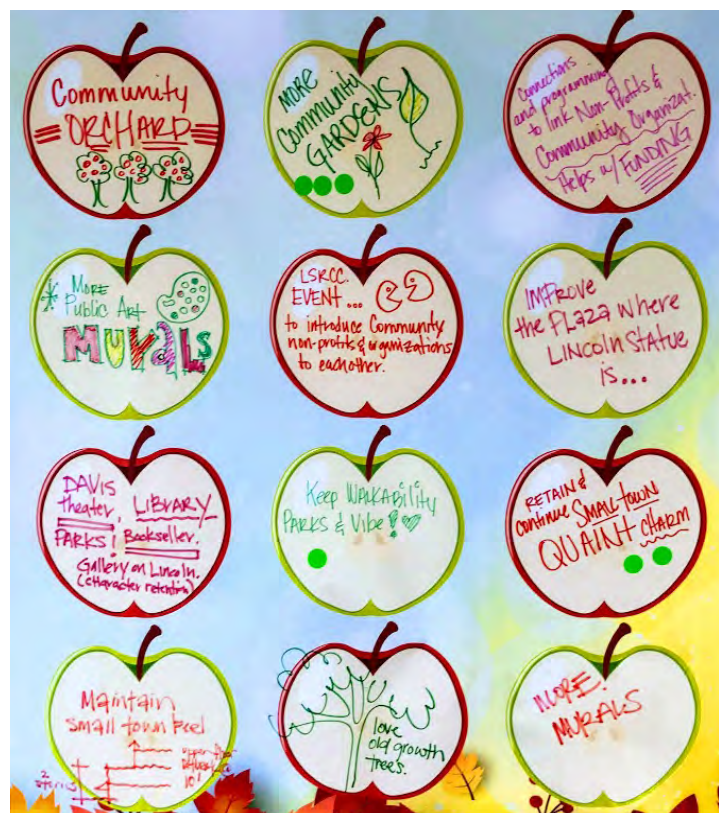 Community
ORCHARD
MORE
Community
GARDENS
Connections
and programming
to link Non-Profits &
Community Organizat.
Helps w/ FUNDING
* More
Public Art
MURALS
LSRCC.
EVENT...
to introduce Community
non-profits & organizations
to eachother.
IMPROVE
the PLAZA where
LINCOLN STATUE
is...
DAVIS
theater, LIBRARY
PARKS! Bookseller.
Gallery on Lincoln.
(character retention)
Keep WALKABILITY
PARKS & Vibe!
RETAIN &
continue SMALL TOWN
QUAINT CHARM
Maintain
small town feel
2
stories
10'
love
old growth
trees.
MORE.
MURALS